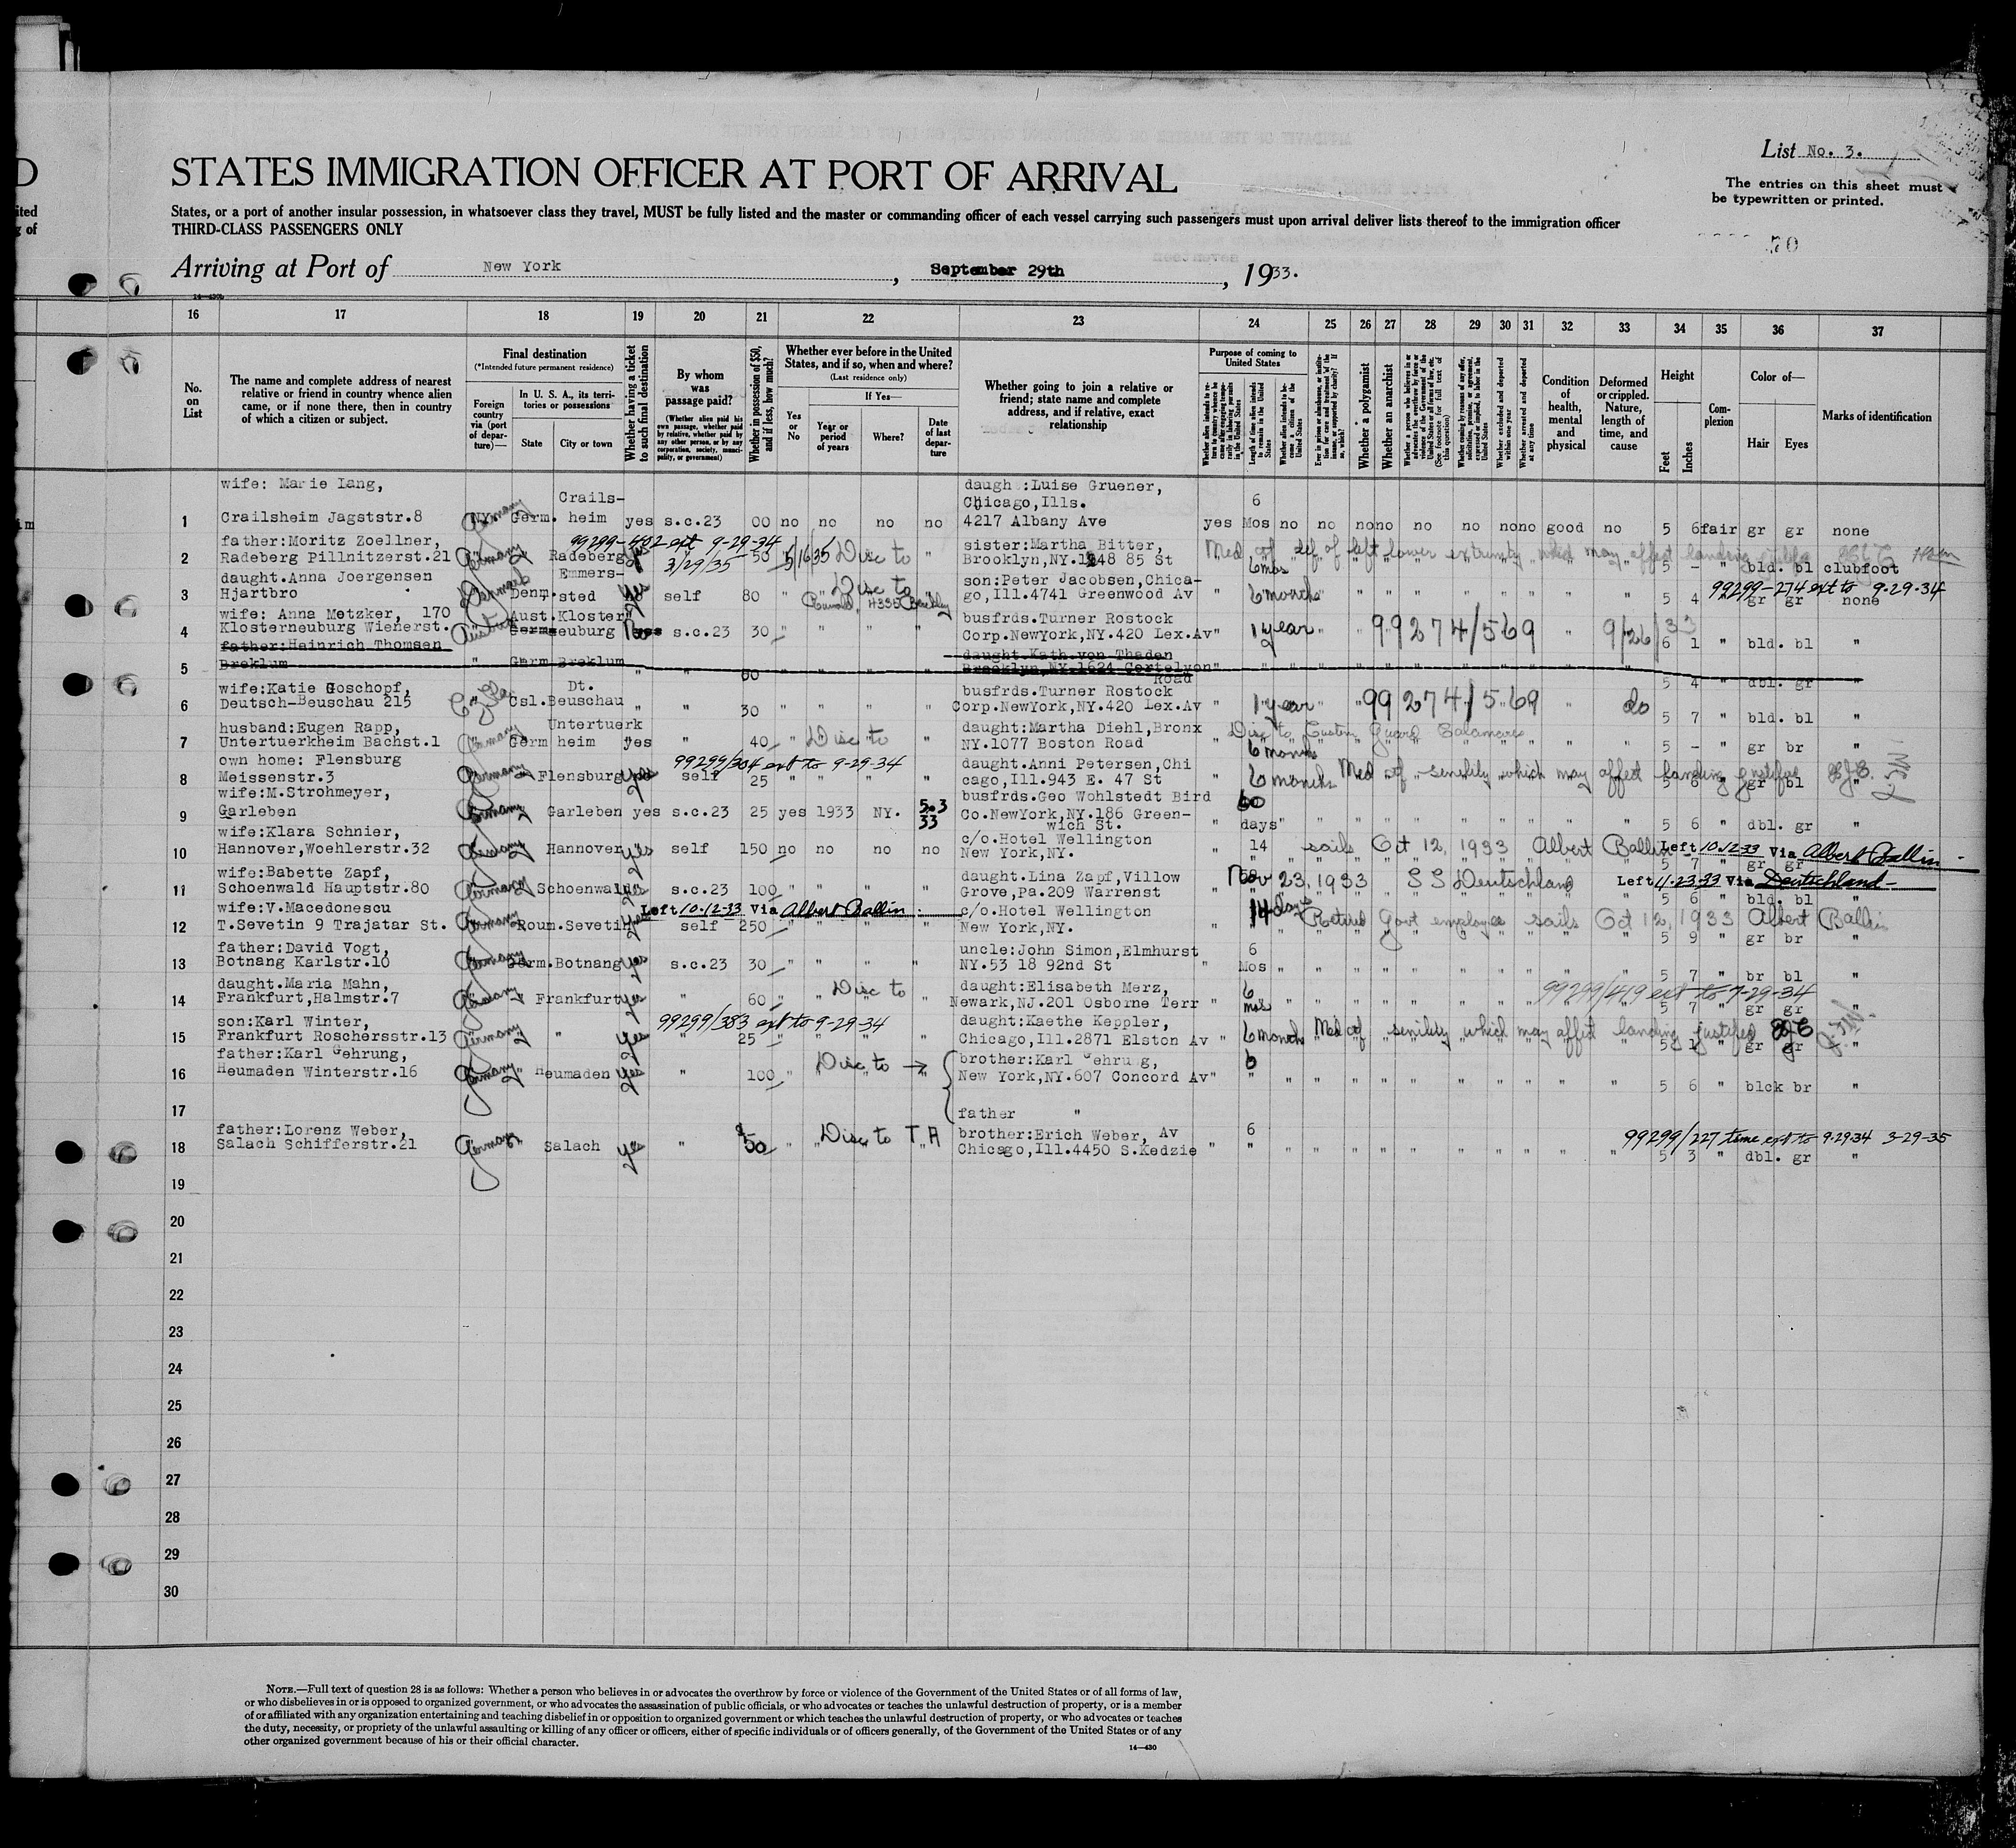 List No. 3.
STATES IMMIGRATION OFFICER AT PORT OF ARRIVAL
The entries on this sheet must
be typewritten or printed.
States, or a port of another insular possession, in whatsoever class they travel, MUST be fully listed and the master or commanding officer of each vessel carrying such passengers must upon arrival deliver lists thereof to the immigration officer
THIRD-CLASS PASSENGERS ONLY
70
Arriving at Port of New York, September 29th, 1933.
16 17 18 19 20 21 22 23 24 25 26 27 28 29 30 31 32 33 34 35 36 37
No. on List
The name and complete address of nearest relative or friend in country whence alien came, or if none there, then in country of which a citizen or subject.
Final destination
(*Intended future permanent residence)
Foreign country via (port of departure)—
In U. S. A., its territories or possessions
State
City or town
Whether having a ticket to such final destination
By whom was passage paid?
(Whether alien paid his own passage, whether paid by relative, whether paid by any other person, or by any corporation, society, municipality, or government)
Whether in possession of $50, and if less, how much?
Whether ever before in the United States, and if so, when and where?
(Last residence only)
Yes or No
If Yes—
Year or period of years
Where?
Date of last departure
Whether going to join a relative or friend; state name and complete address, and if relative, exact relationship
Purpose of coming to United States
Length of time alien intends to remain in the United States
Whether alien intends to become a citizen of the United States
Whether a polygamist
Whether an anarchist
Condition of health, mental and physical
Deformed or crippled. Nature, length of time, and cause
Height
Feet
Inches
Complexion
Color of—
Hair
Eyes
Marks of identification
wife: Marie Lang, daugh:Luise Gruener,
Crails- Chicago,Ills. 6
1 Crailsheim Jagststr.8 Germany Germ. heim yes s.c.23 00 no no no no 4217 Albany Ave yes Mos no no no no no no no no good no 5 6 fair gr gr none
father:Moritz Zoellner, 99299-402 ext 9-29-34 sister:Martha Bitter,
2 Radeberg Pillnitzerst.21 Germany Radeberg yes 3/29/35 50 5/16/35 Disc to " Brooklyn,NY.1848 85 St 6 mos Med ctf def of left lower extremity which may affect landing 5 - " bld. bl clubfoot
daught.Anna Joergensen Emmers- Disc to son:Peter Jacobsen,Chica- 99299-274 ext to 9-29-34
3 Hjartbro Denmark Denm. sted yes self 80 " go,Ill.4741 Greenwood Av " 6 months 5 4 " gr gr none
wife: Anna Metzker, 170 Aust.Kloster busfrds.Turner Rostock
4 Klosterneuburg Wienerst. Austria neuburg s.c.23 30 " " " " Corp.NewYork,NY.420 Lex.Av " 1 year 99274/569 9/26/33 6 1 bld. bl "
father:Heinrich Thomsen daught.Kath.von Thaden
5 Breklum " Germ Breklum " " 60 " " " " Brooklyn,NY.1624 Cortelyon Road " 5 4 " dbl. gr "
wife:Katie Goschopf, Dt. busfrds.Turner Rostock
6 Deutsch-Beuschau 215 Csl.Beuschau " " 30 " " " " Corp.NewYork,NY.420 Lex.Av " 1 year 99274/569 do 5 7 " bld. bl "
husband:Eugen Rapp, Untertuerk daught:Martha Diehl,Bronx
7 Untertuerkheim Bachst.1 Germany Germ heim yes " 40 " Disc to NY.1077 Boston Road " 6 months 5 - " gr br "
own home: Flensburg 99299/304 ext to 9-29-34 daught.Anni Petersen,Chi
8 Meissenstr.3 Germany Flensburg yes self 25 " " " " cago,Ill.943 E. 47 St " 6 months Med ctf senility which may affect landing 5 6 " gr bl "
wife:M.Strohmeyer, busfrds.Geo Wohlstedt Bird 60
9 Garleben Germany Garleben yes s.c.23 25 yes 1933 NY. 5.3 33 Co.NewYork,NY.186 Green- wich St. " days " 5 6 " dbl. gr "
wife:Klara Schnier, c/o.Hotel Wellington
10 Hannover,Woehlerstr.32 Germany Hannover yes self 150 no no no no New York,NY. " 14 sails Oct 12, 1933 Albert Ballin Left 10-12-33 Via Albert Ballin 5 7 gr gr
wife:Babette Zapf, daught.Lina Zapf,Villow
11 Schoenwald Hauptstr.80 Germany Schoenwald yes s.c.23 100 " " " " Grove,Pa.209 Warrenst Nov 23, 1933 S S Deutschland Left 11-23-33 Via Deutschland 5 6 " bld. bl "
wife:V.Macedonescu Left 10-12-33 Via Albert Ballin c/o.Hotel Wellington 14 days
12 T.Sevetin 9 Trajatar St. Germany Roum.Sevetin yes self 250 " " " " New York,NY. " Retired Govt employee sails Oct 12, 1933 Albert Ballin 5 9 " gr br "
father:David Vogt, uncle:John Simon,Elmhurst 6
13 Botnang Karlstr.10 Germany Germ.Botnang yes s.c.23 30 " " " " NY.53 18 92nd St " Mos " 5 7 " br bl "
daught.Maria Mahn, Disc to daught:Elisabeth Merz, 6
14 Frankfurt,Halmstr.7 Germany Frankfurt yes " 60 " " " " Newark,NJ.201 Osborne Terr " mos " 99299/419 ext to 9-29-34 5 7 " gr gr "
son:Karl Winter, 99299/383 ext to 9-29-34 daught:Kaethe Keppler,
15 Frankfurt Roschersstr.13 Germany " yes " 25 " " " " Chicago,Ill.2871 Elston Av " 6 months Med ctf senility which may affect landing justified 5 1 " gr gr "
father:Karl Gehrung, Disc to brother:Karl Gehru g, 6
16 Heumaden Winterstr.16 Germany Heumaden yes " 100 " " " " New York,NY.607 Concord Av " " 5 6 " blck br "
17 father "
father:Lorenz Weber, Disc to T A brother:Erich Weber, Av 6 99299/227 time ext to 9-29-34 3-29-35
18 Salach Schifferstr.21 Germany Salach yes " 50 " " " " Chicago,Ill.4450 S.Kedzie " " 5 3 " dbl. gr "
19
20
21
22
23
24
25
26
27
28
29
30
NOTE.—Full text of question 28 is as follows: Whether a person who believes in or advocates the overthrow by force or violence of the Government of the United States or of all forms of law,
or who disbelieves in or is opposed to organized government, or who advocates the assassination of public officials, or who advocates or teaches the unlawful destruction of property, or is a member
of or affiliated with any organization entertaining and teaching disbelief in or opposition to organized government or which teaches the unlawful destruction of property, or who advocates or teaches
the duty, necessity, or propriety of the unlawful assaulting or killing of any officer or officers, either of specific individuals or of officers generally, of the Government of the United States or of any
other organized government because of his or their official character.
14—430